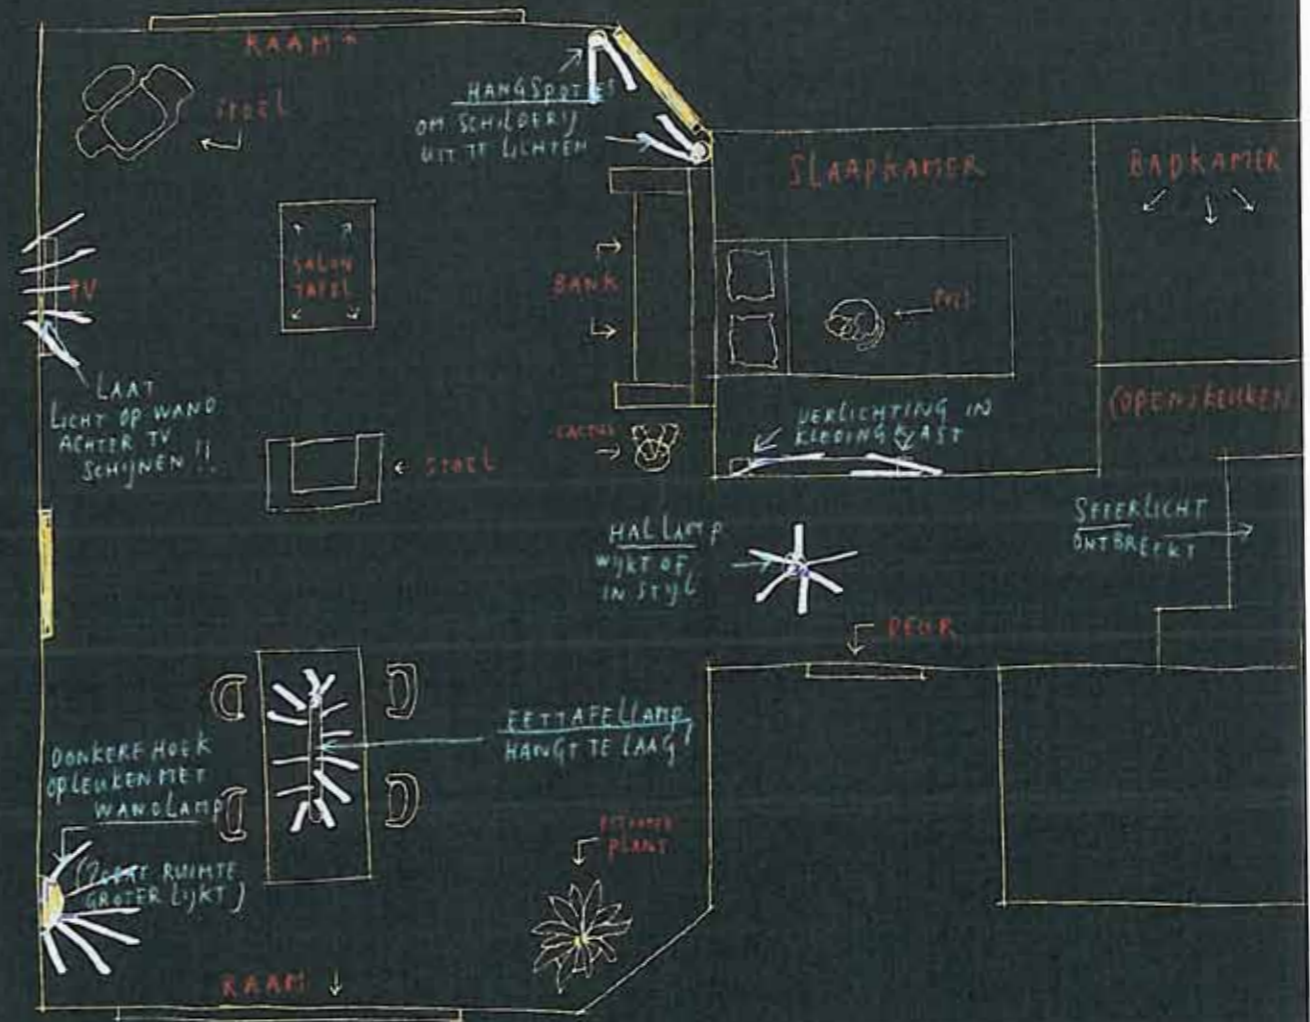 RAAM
STOËL
HANGSPOTJES
OM SCHILDERIJ
UIT TE LICHTEN
SLAAPKAMER
BADKAMER
SALON
TAFEL
TV
BANK
POES
LAAT
LICHT OP WAND
ACHTER TV
SCHIJNEN !!
(OPEN) KEUKEN
VERLICHTING IN
KLEDINGKAST
CACTUS
STOËL
SFEERLICHT
ONTBREEKT
HAL LAMP
WIJKT OF
IN STYL
DEUR
EETTAFELLAMP
HANGT TE LAAG!
DONKERE HOEK
OPLEUKEN MET
WANDLAMP
RUIMTE
GROTER LIJKT)
PLANT
RAAM